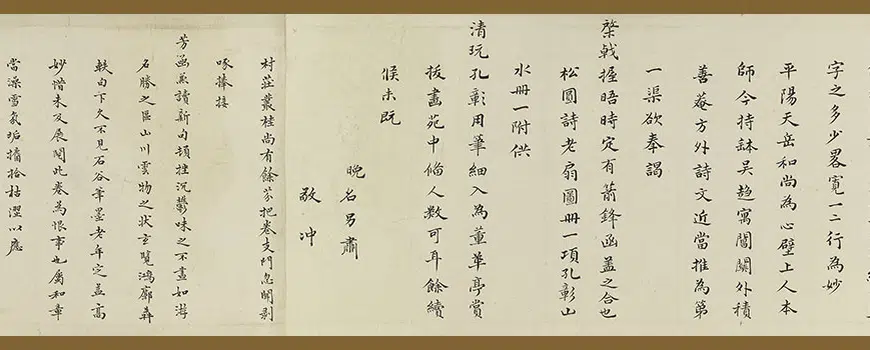 字之多少畧寬一二行為妙
平陽天岳和尚為心壁上人本
師今持鉢吳趨寓閶關外積
善菴方外詩文近當推為第
一渠欲奉謁
棨戟握晤時定有箭鋒函蓋之合也
松圓詩老扇圖冊一項孔彰山
水冊一附供
清玩孔彰用筆細入為董華亭賞
拔畫苑中偹人數可耳餘續
候未既
晚名另肅
敬冲
村莊叢桂尚有餘芬把卷支門忽聞剥
啄捧接
芳函兼讀新句頓挫沉鬱味之不盡如游
石勝之區山川雲物之狀玄覽鴻廓奔
軼句下久不見石谷筆墨老年定益高
妙惜未及展閱此卷為恨事也屬和章
當滌雪氛垢擣拾枯澀以應